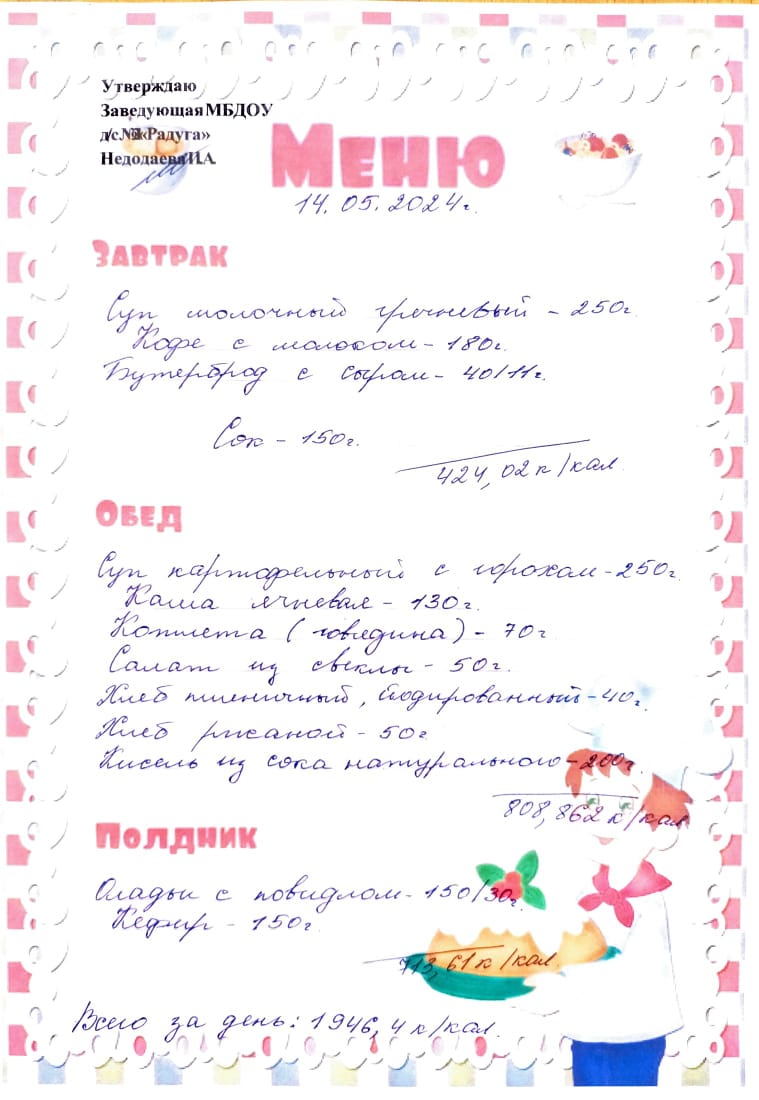 Утверждаю
Заведующая МБДОУ
д/с «Радуга»
Недодаева И.А.
Меню
14.05.2024г.
Завтрак
Суп молочный гречневый - 250г.
Кофе с молоком - 180г.
Бутерброд с сыром - 40/11г.
Сок - 150г.
424,02 к/кал.
Обед
Суп картофельный с горохом - 250г.
Каша ячневая - 130г.
Котлета (говядина) - 70г
Салат из свеклы - 50г.
Хлеб пшеничный, йодированный - 40г.
Хлеб ржаной - 50г
Кисель из сока натурального - 200г.
808,862 к/кал
Полдник
Оладьи с повидлом - 150/30г.
Кефир - 150г.
713,61 к/кал.
Всего за день: 1946,4 к/кал.